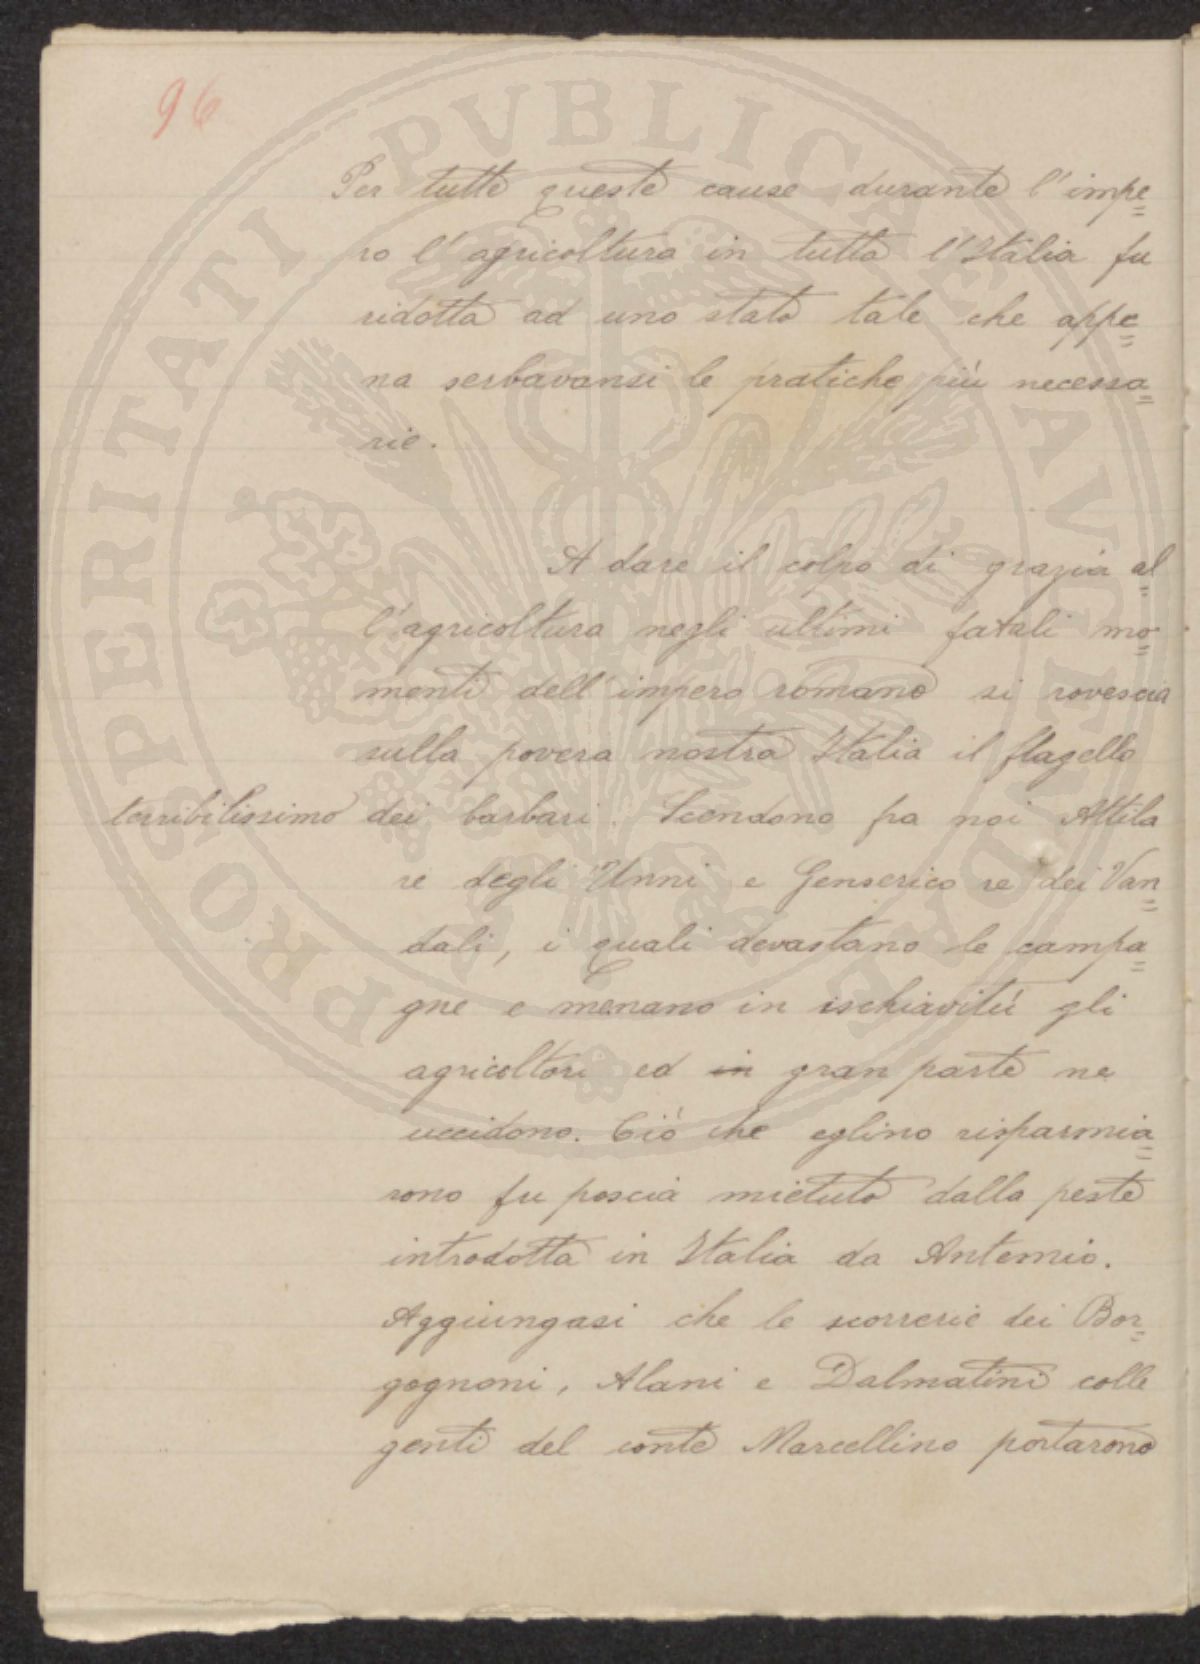 96
Per tutte queste cause durante l'impe=
ro l'agricoltura in tutta l'Italia fu
ridotta ad uno stato tale che appe=
na serbavansi le pratiche più necessa=
rie.
A dare il colpo di grazia al=
l'agricoltura negli ultimi fatali mo=
menti dell'impero romano si rovescia
sulla povera nostra Italia il flagello
terribilissimo dei barbari. Scendono fra noi Attila
re degli Unni e Genserico re dei Van=
dali, i quali devastano le campa=
gne e menano in ischiavitù gli
agricoltori ed in gran parte ne
uccidono. Ciò che eglino risparmia=
rono fu poscia mietuto dalla peste
introdotta in Italia da Antemio.
Aggiungasi che le scorrerie dei Bor=
gognoni, Alani e Dalmatini colle
genti del conte Marcellino portarono
PROSPERITATI PVBLICAE AVGENDAE